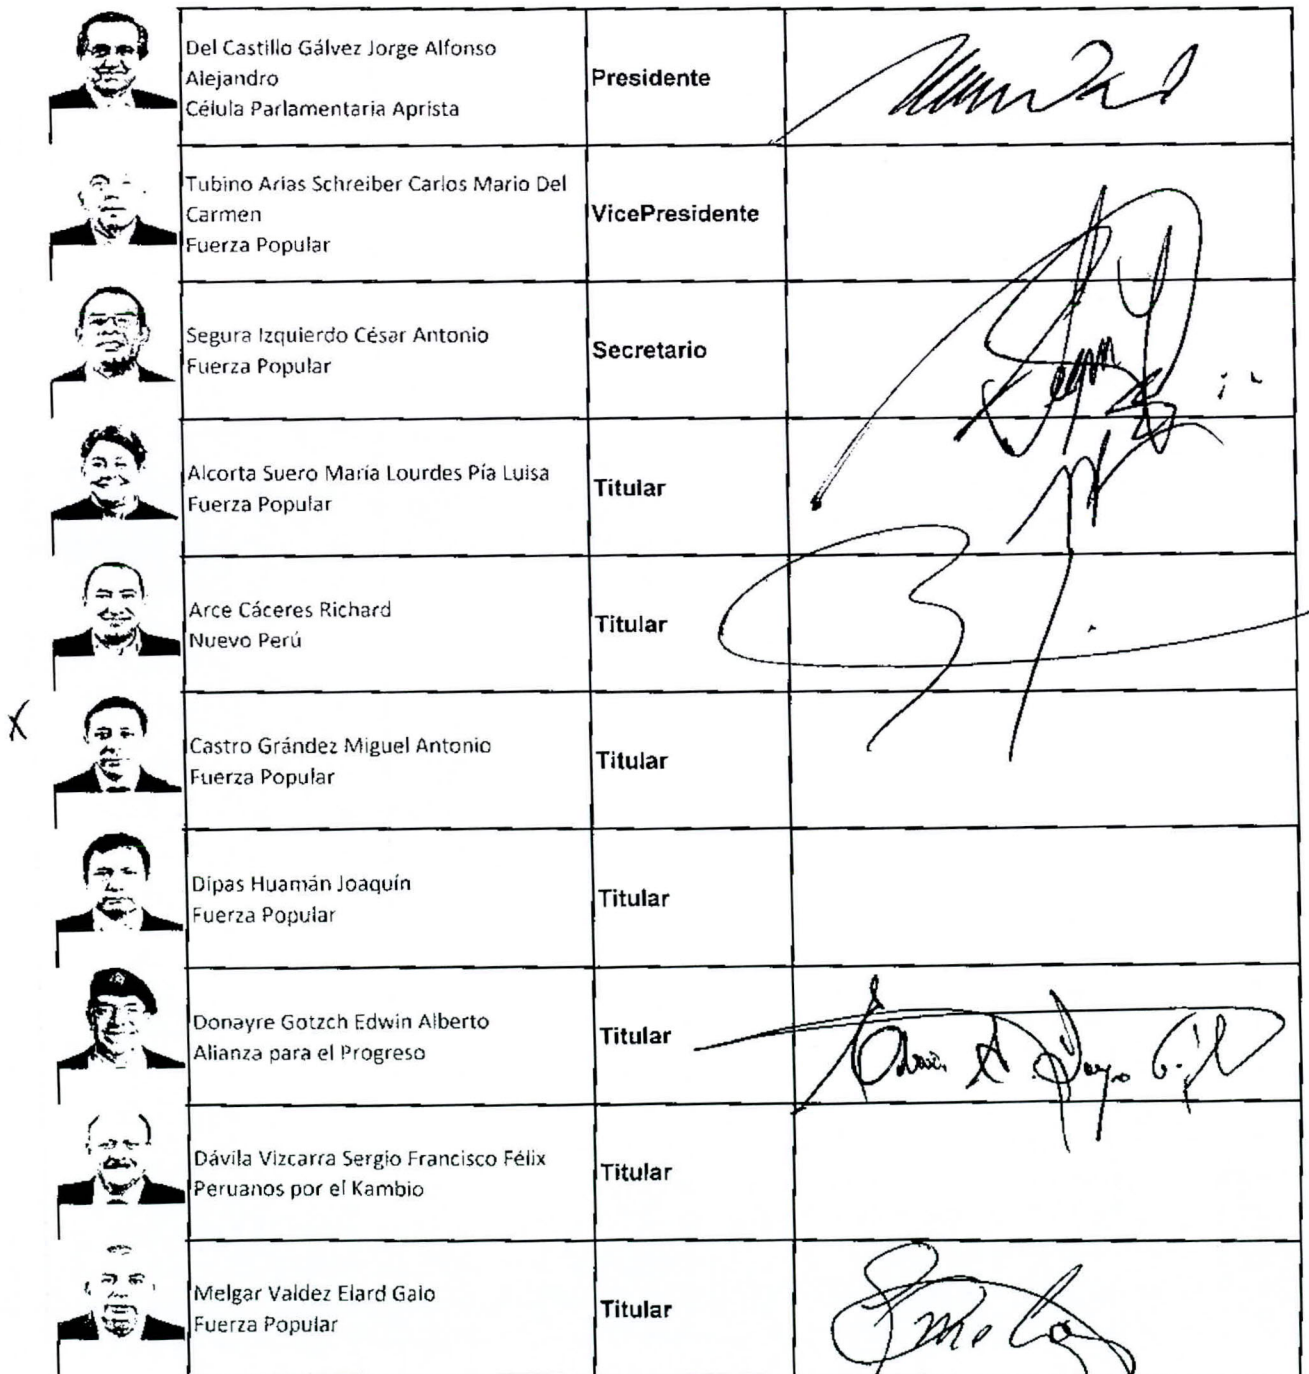 Del Castillo Gálvez Jorge Alfonso
Alejandro
Célula Parlamentaria Aprista
Presidente
Tubino Arias Schreiber Carlos Mario Del
Carmen
Fuerza Popular
VicePresidente
Segura Izquierdo César Antonio
Fuerza Popular
Secretario
Alcorta Suero María Lourdes Pía Luisa
Fuerza Popular
Titular
Arce Cáceres Richard
Nuevo Perú
Titular
X
Castro Grández Miguel Antonio
Fuerza Popular
Titular
Dipas Huamán Joaquín
Fuerza Popular
Titular
Donayre Gotzch Edwin Alberto
Alianza para el Progreso
Titular
Dávila Vizcarra Sergio Francisco Félix
Peruanos por el Kambio
Titular
Melgar Valdez Elard Galo
Fuerza Popular
Titular